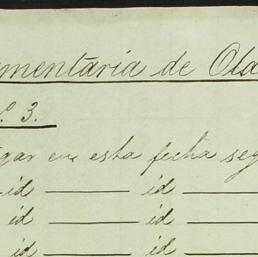 mentaria de Ola
º 3.
gar en esta fecha seg
id id
id id
id id